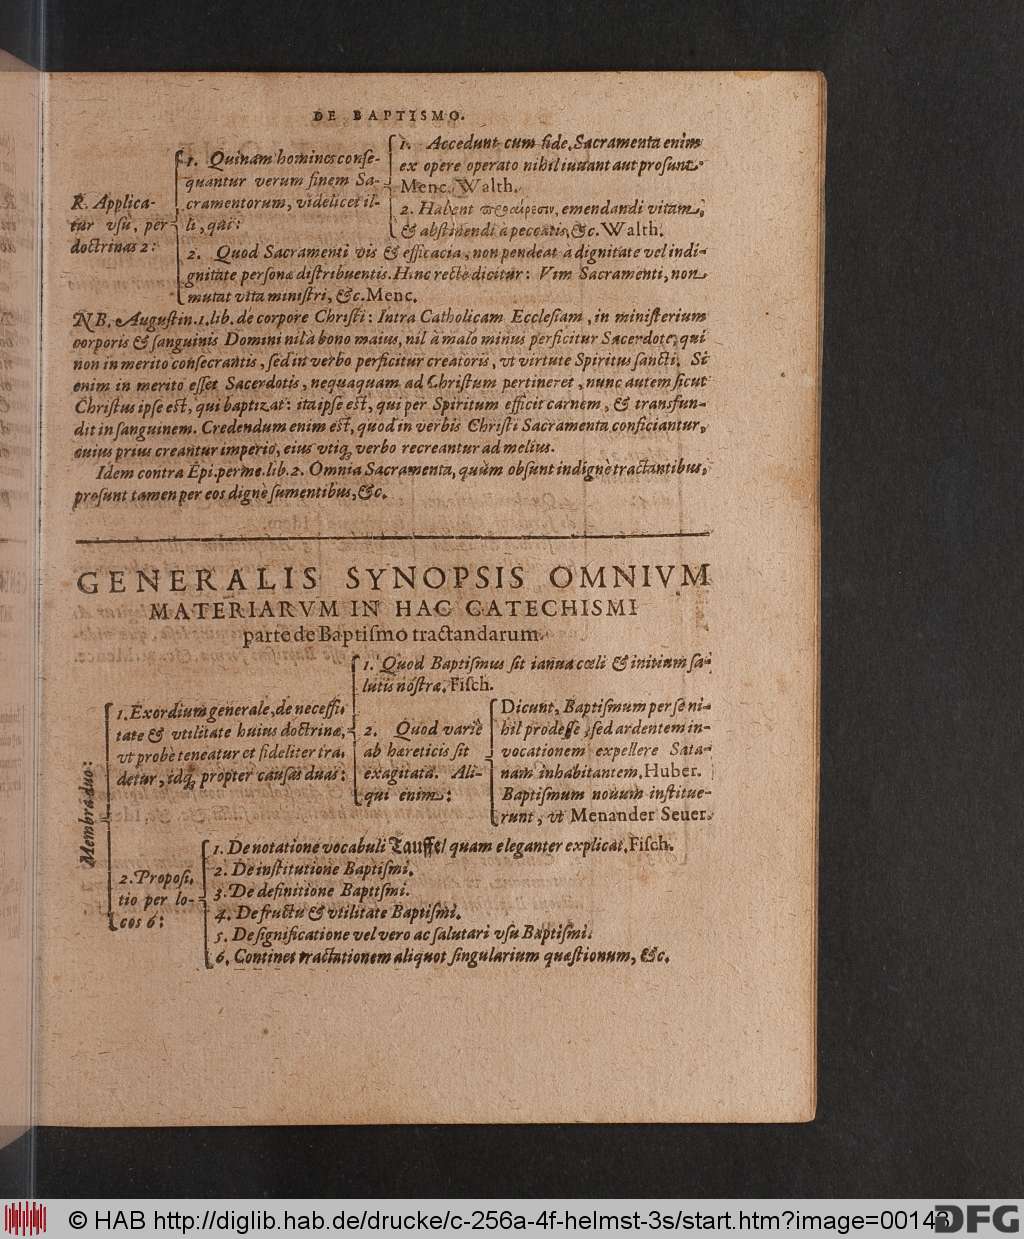 DE BAPTISMO.
R. Applica-
tur vsu, per
doctrinas 2:
1. Quinam homines conse-
quantur verum finem Sa-
cramentorum, videlicet il-
li, qui:
1. Accedunt cum fide, Sacramenta enim
ex opere operato nihil iuuant aut prosunt.
Menc. Walth.
2. Habent προαίρεσιν, emendandi vitam,
& abstinendi à peccatis, &c. Walth.
2. Quod Sacramenti vis & efficacia, non pendeat à dignitate vel indi-
gnitate personæ distribuentis. Hinc rectè dicitur: Vim Sacramenti, non
mutat vita ministri, &c. Menc.
NB. Augustin. 1. lib. de corpore Christi: Intra Catholicam Ecclesiam, in ministerium
corporis & sanguinis Domini nil à bono maius, nil à malo minus perficitur Sacerdote, qui
non in merito consecrantis, sed in verbo perficitur creatoris, vt virtute Spiritus sancti. Si
enim in merito esset Sacerdotis, nequaquam ad Christum pertineret, nunc autem sicut
Christus ipse est, qui baptizat: ita ipse est, qui per Spiritum efficit carnem, & transfun-
dit in sanguinem. Credendum enim est, quod in verbis Christi Sacramenta conficiantur,
cuius prius creantur imperio, eius vtiq; verbo recreantur ad melius.
Idem contra Epi. perme. lib. 2. Omnia Sacramenta, quùm obsunt indignè tractantibus,
prosunt tamen per eos dignè sumentibus, &c.
GENERALIS SYNOPSIS OMNIVM
MATERIARVM IN HAC CATECHISMI
parte de Baptismo tractandarum.
Membra duo:
1. Exordium generale, de necessi-
tate & vtilitate huius doctrinæ,
vt probè teneatur et fideliter tra-
detur, idq; propter causas duas:
1. Quod Baptismus sit ianua cœli & initium sa-
lutis nostræ. Fisch.
2. Quod variè
ab hæreticis sit
exagitata. Ali-
qui enim:
Dicunt, Baptismum per se ni-
hil prodesse, sed ardentem in-
vocationem expellere Sata-
nam inhabitantem. Huber.
Baptismum nouum institue-
runt, vt Menander Seuer.
2. Proposi-
tio per lo-
cos 6:
1. De notatione vocabuli Tauffe/ quam eleganter explicat. Fisch.
2. De institutione Baptismi.
3. De definitione Baptismi.
4. De fructu & vtilitate Baptismi.
5. De significatione vel vero ac salutari vsu Baptismi.
6. Continet tractationem aliquot singularium quæstionum, &c.
© HAB http://diglib.hab.de/drucke/c-256a-4f-helmst-3s/start.htm?image=00143
DFG